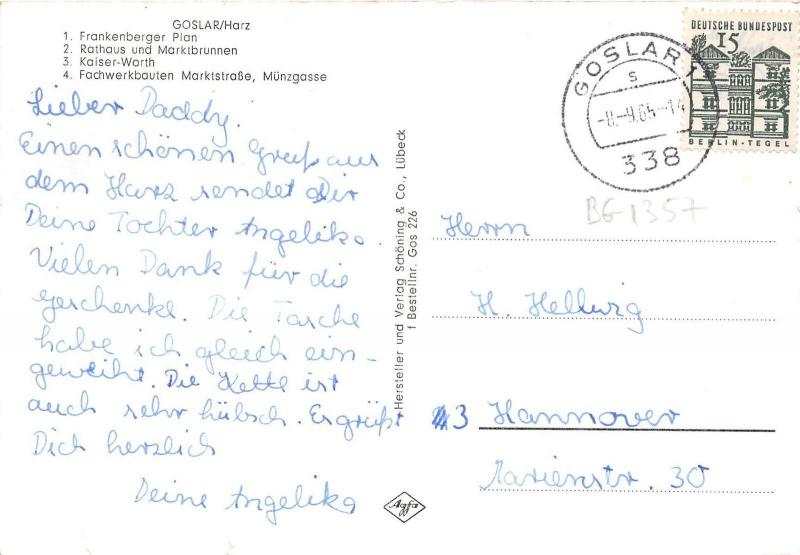 GOSLAR/Harz
1. Frankenberger Plan
2. Rathaus und Marktbrunnen
3. Kaiser-Worth
4. Fachwerkbauten Marktstraße, Münzgasse
Lieber Daddy.
Einen schönen Gruß aus
dem Harz sendet Dir
Deine Tochter Angelika.
Vielen Dank für die
Geschenke. Die Tasche
habe ich gleich ein-
geweiht. Die Kette ist
auch sehr hübsch. Es grüßt
Dich herzlich
Deine Angelika
Hersteller und Verlag Schöning & Co., Lübeck
f Bestellnr. Gos 226
Agfa
DEUTSCHE BUNDESPOST
15
BERLIN-TEGEL
GOSLAR 1
s
-8.-9.65-14
338
BG 1357
Herrn
H. Hellwig
3 Hannover
Marienstr. 30